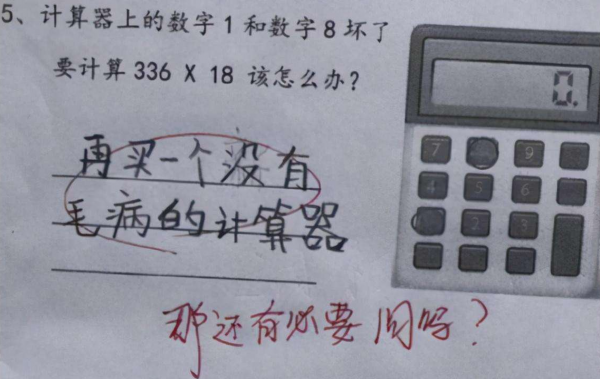 5、计算器上的数字1和数字8坏了
要计算 336 X 18 该怎么办?
0.
再买一个没有
毛病的计算器
7 9
4 5 6
2 3
那还有必要问吗?